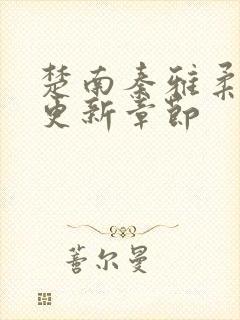 楚南秦雅柔
更新章节
善尔曼